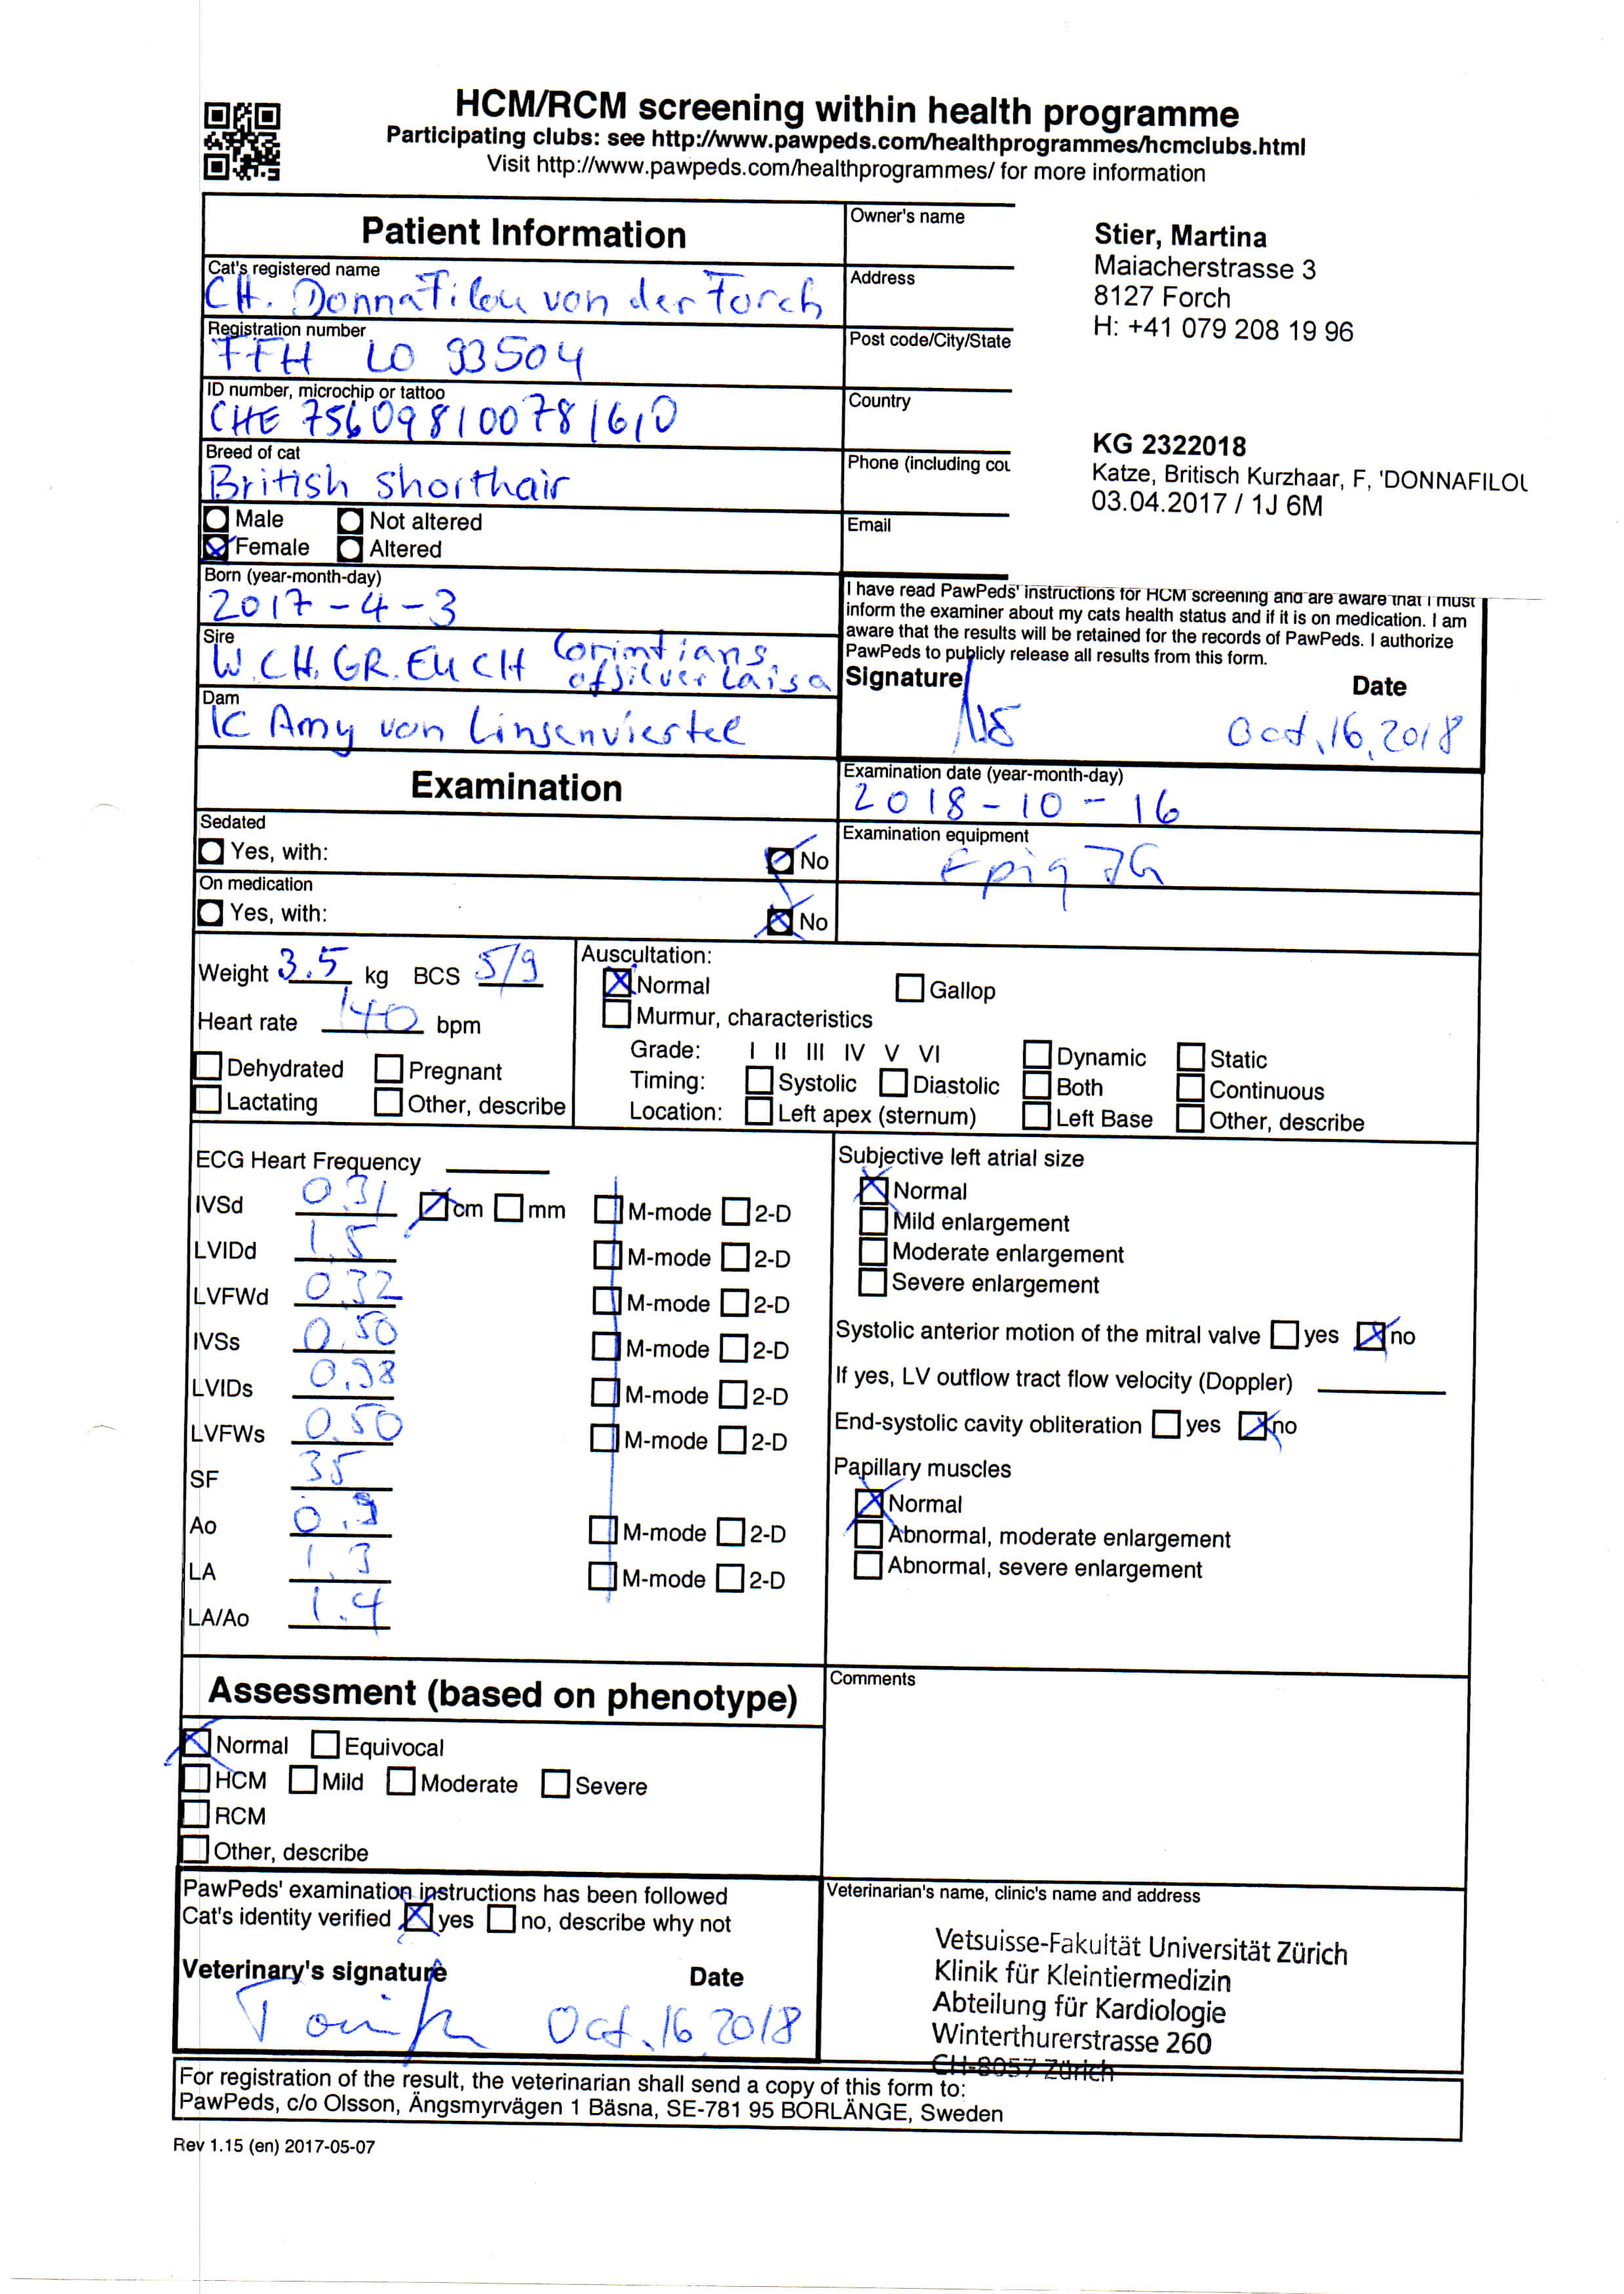 HCM/RCM screening within health programme
Participating clubs: see http://www.pawpeds.com/healthprogrammes/hcmclubs.html
Visit http://www.pawpeds.com/healthprogrammes/ for more information
Patient Information
Cat's registered name
CH. DonnaFilou von der Forch
Registration number
FFH LO 93504
ID number, microchip or tattoo
CHE 756098100781610
Breed of cat
British shorthair
Male Not altered
Female Altered
Born (year-month-day)
2017-4-3
Sire
W.CH.GR.EUCH Corintians
of Silver Laisa
Dam
IC Amy von Linsenviertel
Owner's name
Address
Post code/City/State
Country
Phone (including cou
Email
Stier, Martina
Maiacherstrasse 3
8127 Forch
H: +41 079 208 19 96
KG 2322018
Katze, Britisch Kurzhaar, F, 'DONNAFILOU
03.04.2017 / 1J 6M
I have read PawPeds' instructions for HCM screening and are aware that I must
inform the examiner about my cats health status and if it is on medication. I am
aware that the results will be retained for the records of PawPeds. I authorize
PawPeds to publicly release all results from this form.
Signature Date
Oct, 16, 2018
Examination
Examination date (year-month-day)
2018-10-16
Sedated
Yes, with: No
Examination equipment
Epiq 7G
On medication
Yes, with: No
Weight 3.5 kg BCS 5/9
Heart rate 140 bpm
Dehydrated Pregnant
Lactating Other, describe
Auscultation:
Normal Gallop
Murmur, characteristics
Grade: I II III IV V VI Dynamic Static
Timing: Systolic Diastolic Both Continuous
Location: Left apex (sternum) Left Base Other, describe
ECG Heart Frequency
IVSd 0.31 cm mm M-mode 2-D
LVIDd 1.5 M-mode 2-D
LVFWd 0.32 M-mode 2-D
IVSs 0.50 M-mode 2-D
LVIDs 0.98 M-mode 2-D
LVFWs 0.50 M-mode 2-D
SF 35
Ao 0.9 M-mode 2-D
LA 1.3 M-mode 2-D
LA/Ao 1.4
Subjective left atrial size
Normal
Mild enlargement
Moderate enlargement
Severe enlargement
Systolic anterior motion of the mitral valve yes no
If yes, LV outflow tract flow velocity (Doppler)
End-systolic cavity obliteration yes no
Papillary muscles
Normal
Abnormal, moderate enlargement
Abnormal, severe enlargement
Assessment (based on phenotype)
Normal Equivocal
HCM Mild Moderate Severe
RCM
Other, describe
Comments
PawPeds' examination instructions has been followed
Cat's identity verified yes no, describe why not
Veterinary's signature Date
Oct, 16 2018
Veterinarian's name, clinic's name and address
Vetsuisse-Fakultät Universität Zürich
Klinik für Kleintiermedizin
Abteilung für Kardiologie
Winterthurerstrasse 260
CH-8057 Zürich
For registration of the result, the veterinarian shall send a copy of this form to:
PawPeds, c/o Olsson, Ängsmyrvägen 1 Bäsna, SE-781 95 BORLÄNGE, Sweden
Rev 1.15 (en) 2017-05-07